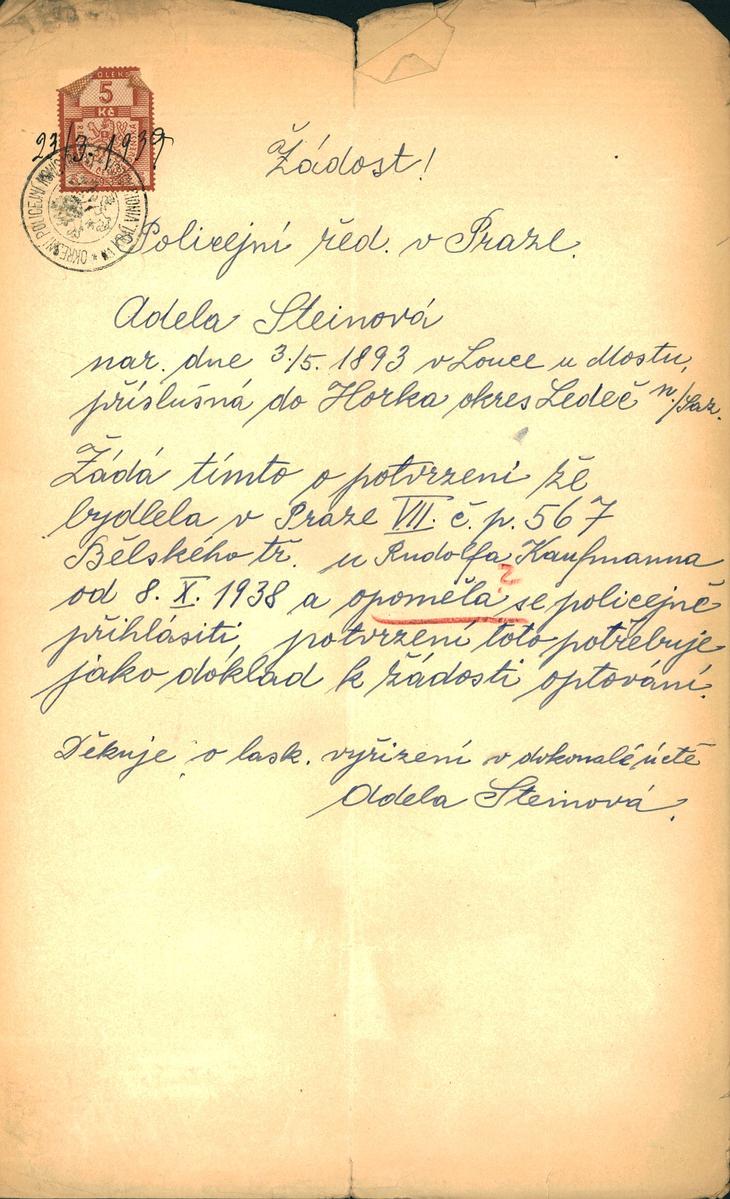 KOLEK
5
Kč
27/3. 1939
OKRESNÍ POLICEJNÍ
Žádost!
Policejní řed. v Praze.
Adela Steinová
nar. dne 3./5. 1893 v Louce u Mostu,
příslušná do Horka okres Ledeč n./Saz.
Žádá tímto o potvrzení že
bydlela v Praze VII. č. p. 567
Bělského tř. u Rudolfa Kaufmanna
?
od 8. X. 1938 a opoměla se policejně
přihlásiti, potvrzení toto potřebuje
jako doklad k žádosti optování.
Děkuje o lask. vyřízení v dokonalé úctě
Adela Steinová.